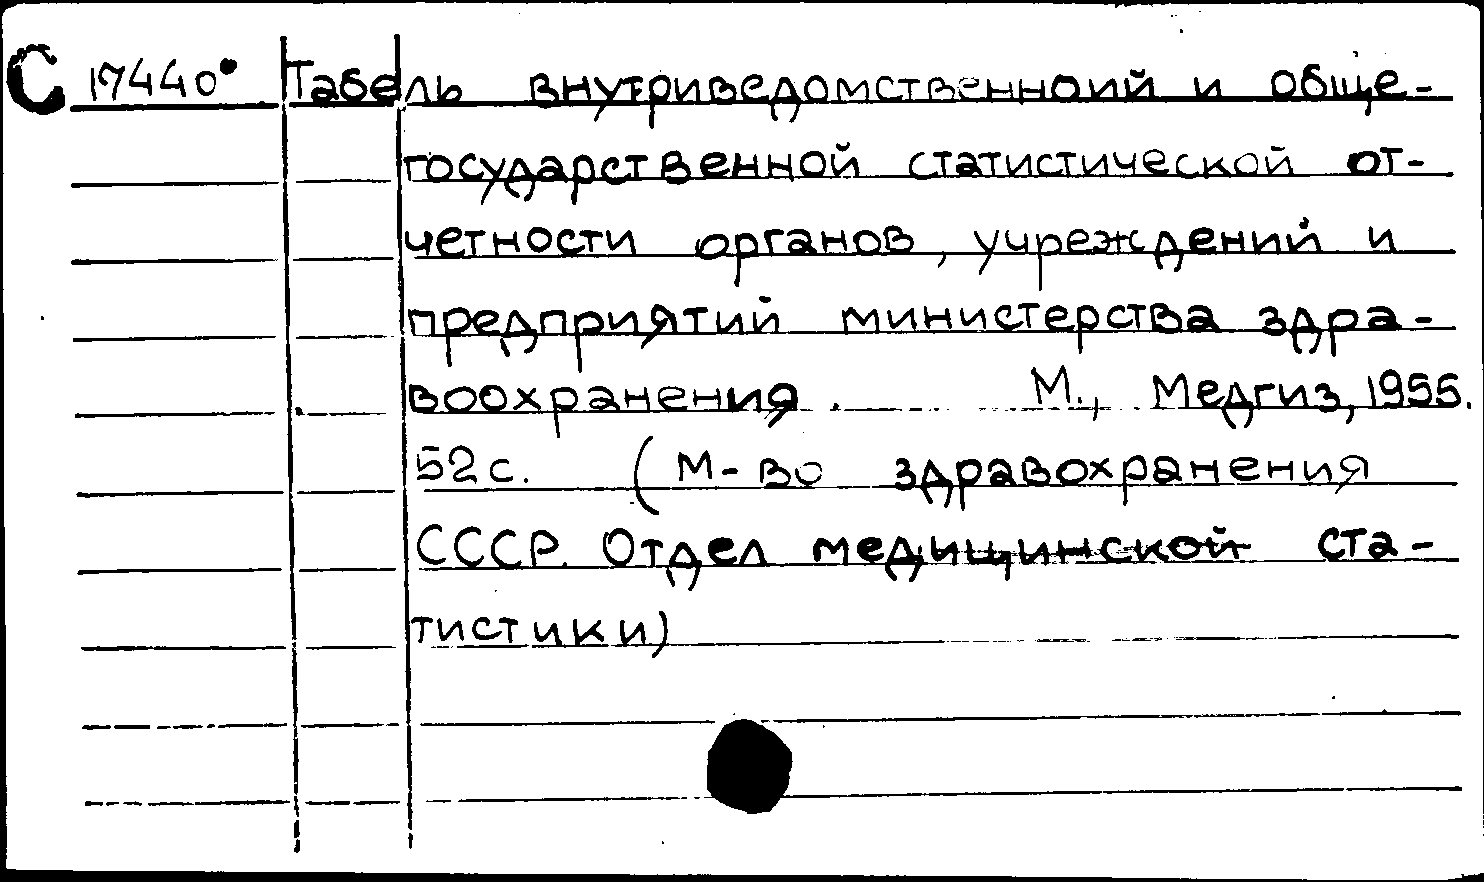 С 17440° Табель внутриведомственноий и обще-
государственной статистической от-
четности органов, учреждений и
предприятий министерства здра-
воохранения. М., Медгиз, 1955.
52 с. (М-во здравохранения
СССР. Отдел медицинской ста-
тистики)